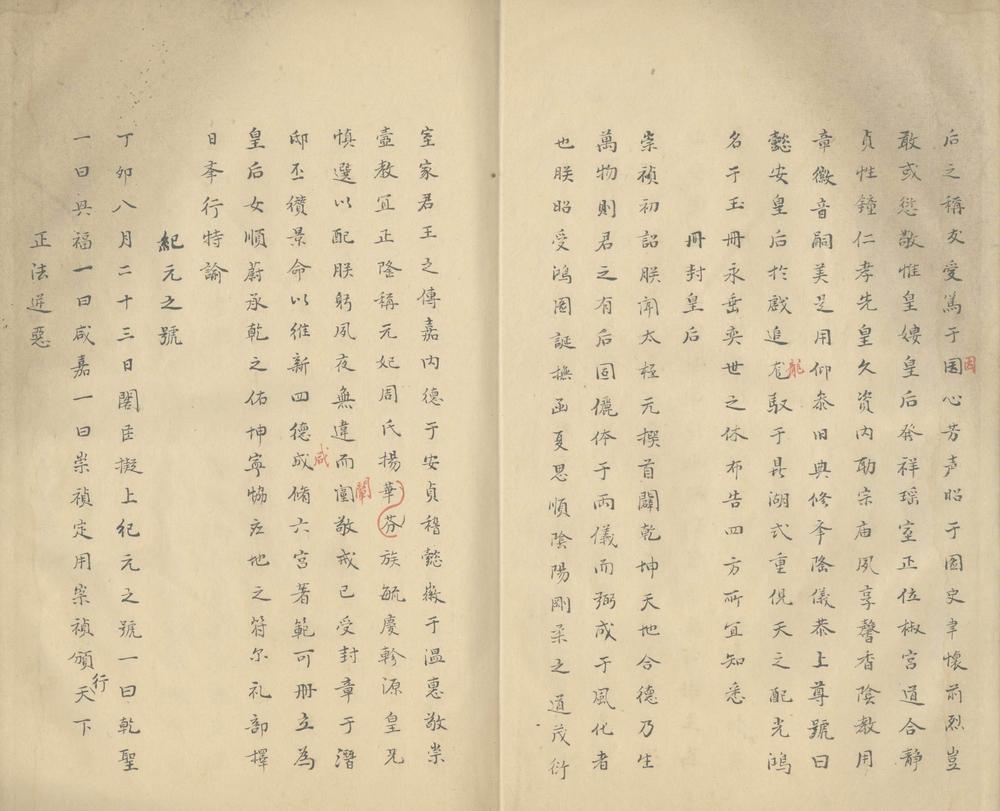 后之稱友愛篤于国心芳声昭于圖史聿懷前烈豈
因
敢或愆敬惟皇嫂皇后發祥瑶室正位椒宮道合靜
貞性鐘仁孝先皇久資内助宗庙夙享馨香陰教用
章徽音嗣美是用仰叅旧典修奉隆儀恭上尊號曰
懿安皇后於戲追尨馭于昙湖式重俔天之配光鴻
龍
名于玉冊永垂奕世之休布告四方所宜知悉
冊封皇后
崇禎初詔朕聞太極元撰首闢乾坤天地合德乃生
萬物則君之有后固儷体于兩儀而弼成于風化者
也朕昭受鴻圖誕撫函夏思順陰陽剛柔之道茂衍
室家君王之傳嘉内德于安貞稽懿徽于温惠敬崇
壼教宜正隆稱元妃周氏揚華芬族毓慶軫源皇兄
慎選以配朕躬夙夜無違而闺敬戒已受封章于潛
蘭
邸丕纘景命以維新四德成脩六宮著範可冊立為
咸
皇后女順蔚承乾之佑坤寧恊应地之符尔礼部擇
日奉行特諭
紀元之號
丁卯八月二十三日閣臣擬上紀元之號一曰乾聖
一曰興福一曰咸嘉一曰崇禎定用崇禎頒行天下
正法逆惡